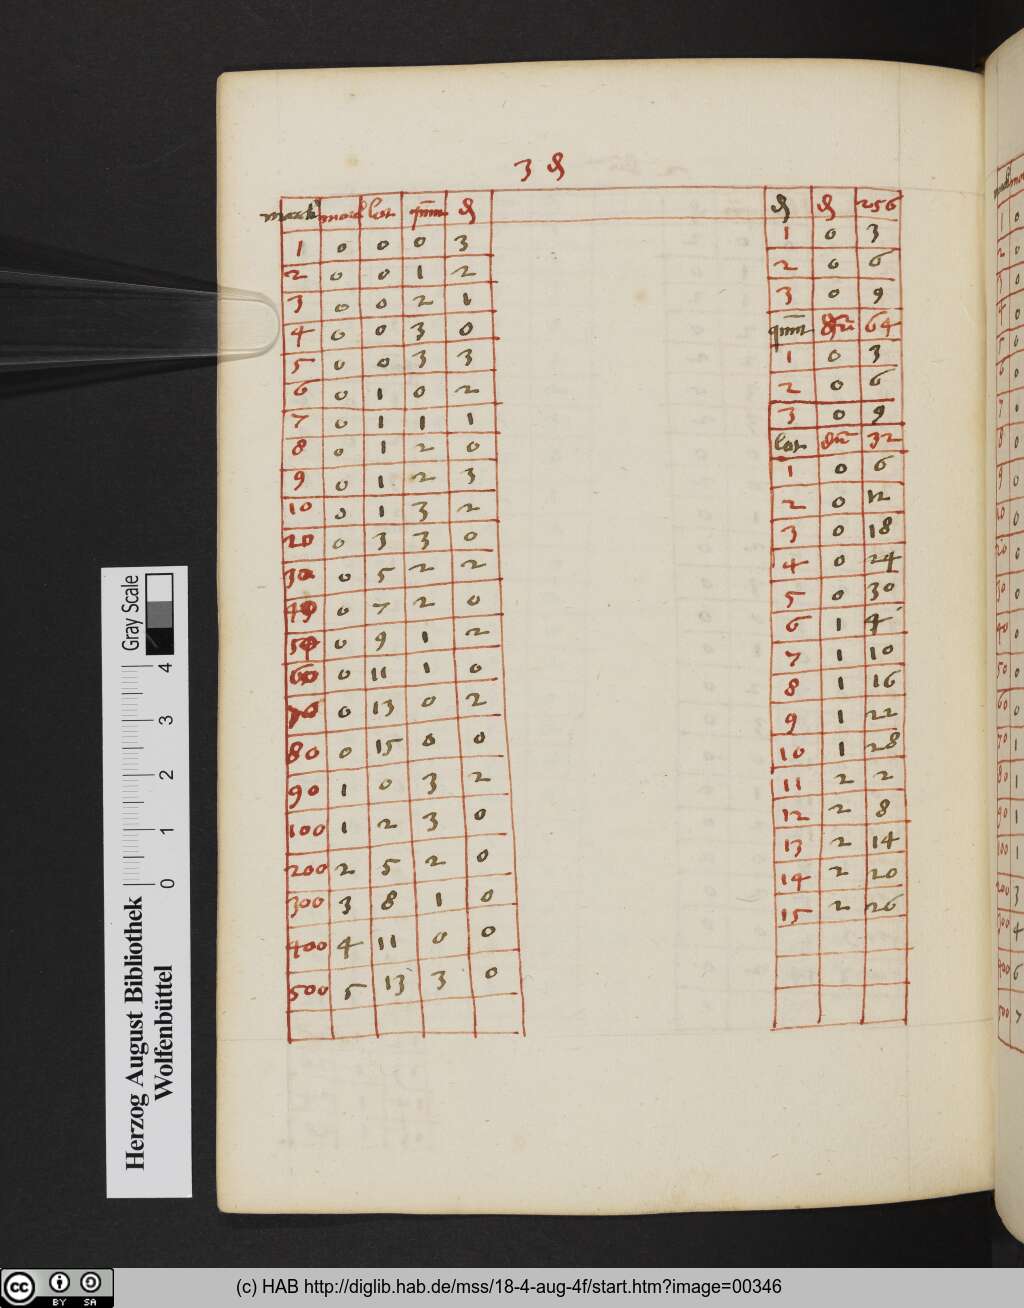 3 ₰
marck marck lot qnn ₰
1 0 0 0 3
2 0 0 1 2
3 0 0 2 1
4 0 0 3 0
5 0 0 3 3
6 0 1 0 2
7 0 1 1 1
8 0 1 2 0
9 0 1 2 3
10 0 1 3 2
20 0 3 3 0
30 0 5 2 2
40 0 7 2 0
50 0 9 1 2
60 0 11 1 0
70 0 13 0 2
80 0 15 0 0
90 1 0 3 2
100 1 2 3 0
200 2 5 2 0
300 3 8 1 0
400 4 11 0 0
500 5 13 3 0
₰ ₰ 256
1 0 3
2 0 6
3 0 9
qnn 64
1 0 3
2 0 6
3 0 9
lot 32
1 0 6
2 0 12
3 0 18
4 0 24
5 0 30
6 1 4
7 1 10
8 1 16
9 1 22
10 1 28
11 2 2
12 2 8
13 2 14
14 2 20
15 2 26
Gray Scale
4 3 2 1 0
Herzog August Bibliothek
Wolfenbüttel
cc BY SA
(c) HAB http://diglib.hab.de/mss/18-4-aug-4f/start.htm?image=00346